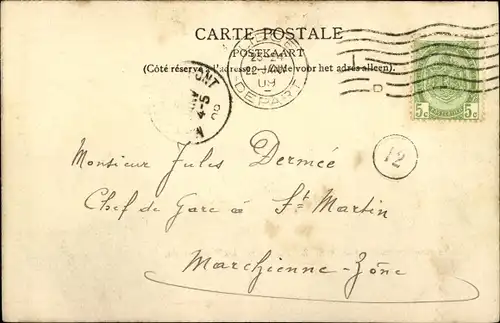 CARTE POSTALE
POSTKAART
(Côté réservé à l'adresse. — Zijde voor het adres alleen).
22 JANV
09
DEPART
4-5
5c 5c
12
Monsieur Jules Dermée
Chef de Gare à St Martin
Marchienne-Zône